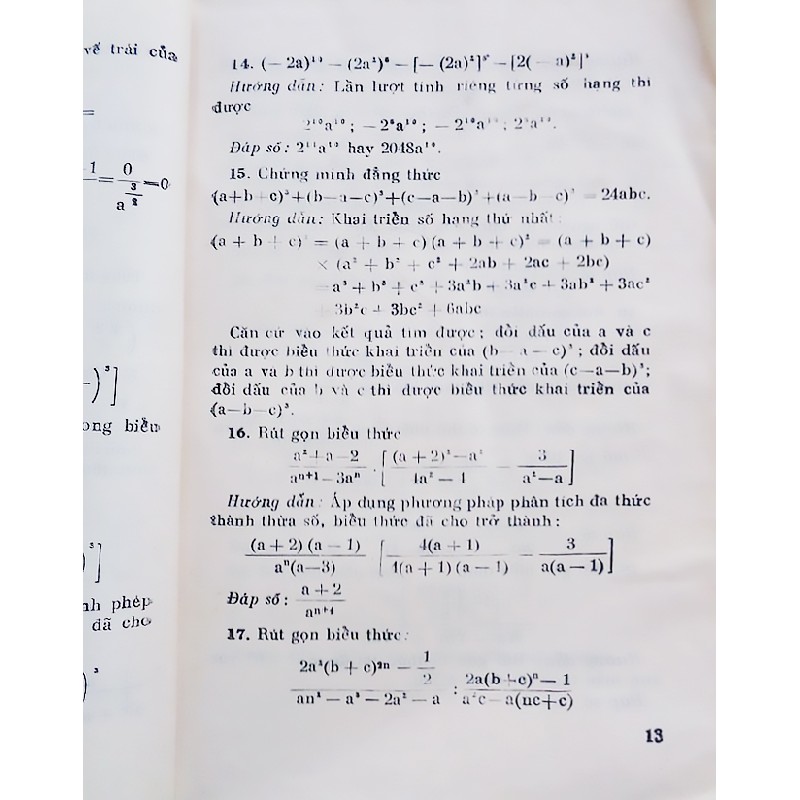 vế trái của
=
1 = 0/a^(3/2) = 0
)³]
ong biểu
³]
nh phép
đã cho
)³
14. (− 2a)¹⁰ − (2a²)⁵ − [− (2a)²]⁵ − [2(− a)²]⁵
Hướng dẫn: Lần lượt tính riêng từng số hạng thì
được
2¹⁰a¹⁰ ; − 2⁵a¹⁰ ; − 2¹⁰a¹⁰ ; 2⁵a¹⁰.
Đáp số : 2¹¹a¹⁰ hay 2048a¹⁰.
15. Chứng minh đẳng thức
(a+b+c)³+(b−a−c)³+(c−a−b)³+(a−b−c)³ = 24abc.
Hướng dẫn: Khai triển số hạng thứ nhất:
(a + b + c)³ = (a + b + c) (a + b + c)² = (a + b + c)
× (a² + b² + c² + 2ab + 2ac + 2bc)
= a³ + b³ + c³ + 3a²b + 3a²c + 3ab² + 3ac²
+ 3b²c + 3bc² + 6abc
Căn cứ vào kết quả tìm được ; đổi dấu của a và c
thì được biểu thức khai triển của (b − a − c)³ ; đổi dấu
của a và b thì được biểu thức khai triển của (c−a−b)³;
đổi dấu của b và c thì được biểu thức khai triển của
(a−b−c)³.
16. Rút gọn biểu thức
(a²+a−2)/(aⁿ⁺¹−3aⁿ) · [((a + 2)²−a²)/(4a² − 4) − 3/(a²−a)]
Hướng dẫn : Áp dụng phương pháp phân tích đa thức
thành thừa số, biểu thức đã cho trở thành :
((a + 2) (a − 1))/(aⁿ(a−3)) [(4(a + 1))/(4(a + 1) (a − 1)) − 3/(a(a − 1))]
Đáp số : (a + 2)/(aⁿ⁺¹)
17. Rút gọn biểu thức:
(2a²(b + c)²ⁿ − 1/2)/(an² − a³ − 2a² − a) : (2a(b+c)ⁿ − 1)/(a²c − a(nc+c))
13